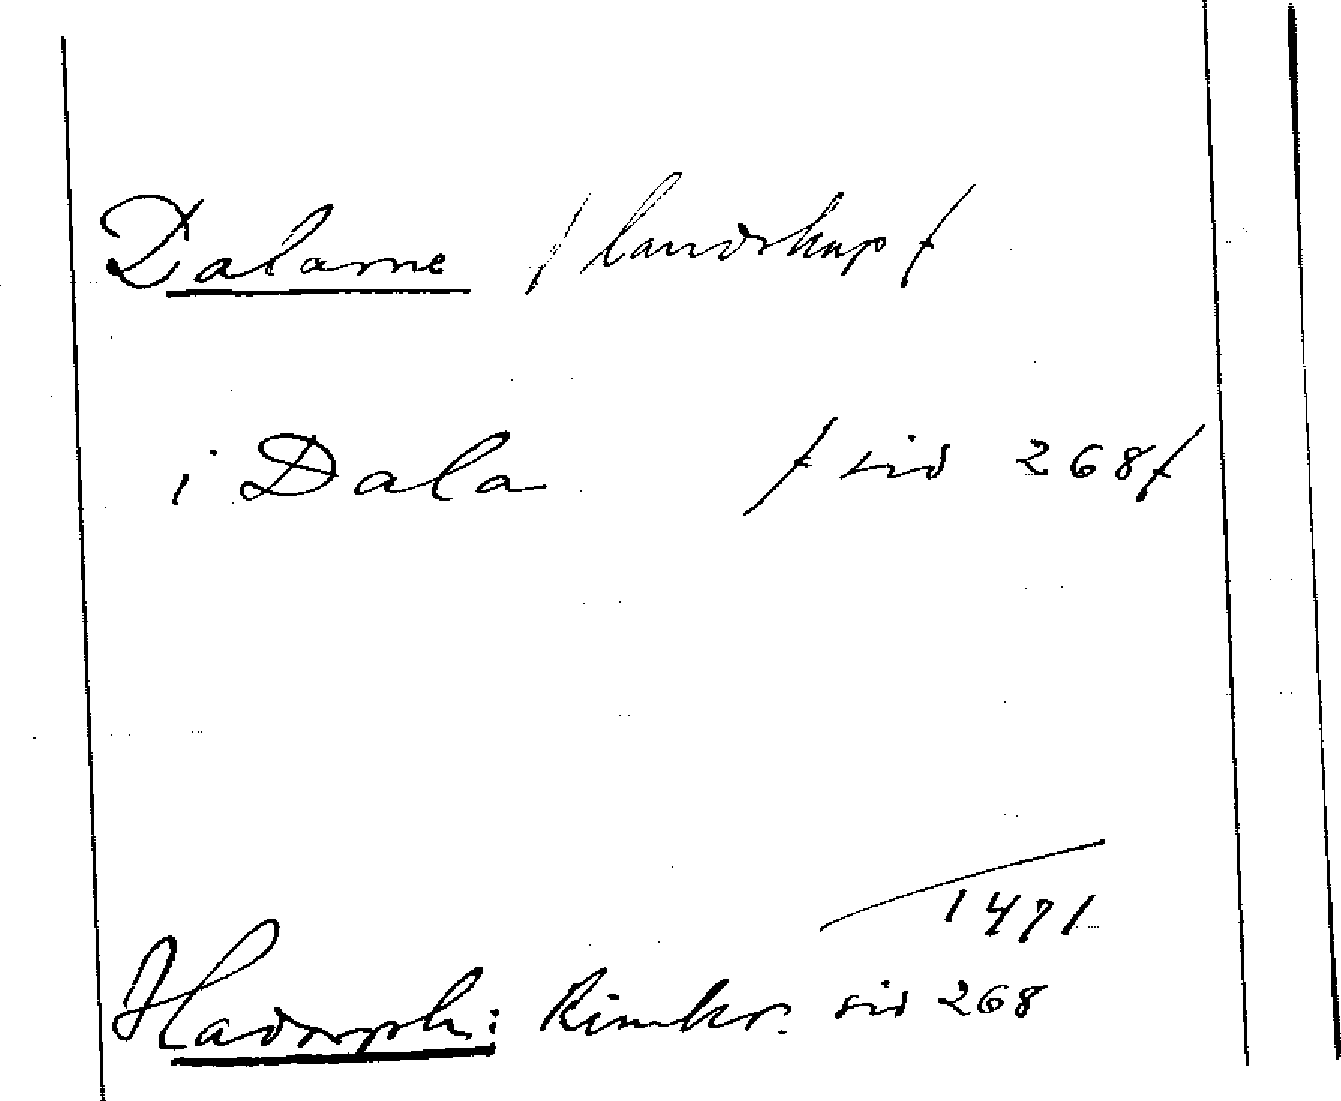 Dalarne /landskap/
i Dala /sid 268/
1471
Hadorph: Rimkr. sid 268